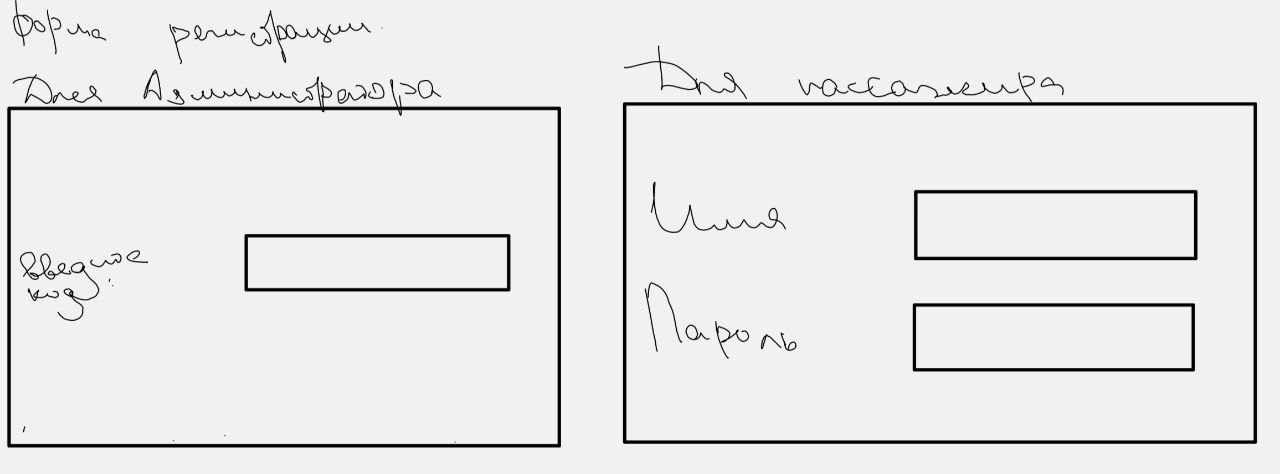 Форма регистрации
Для Администратора
введите
код:
Для пассажира
Имя
Пароль